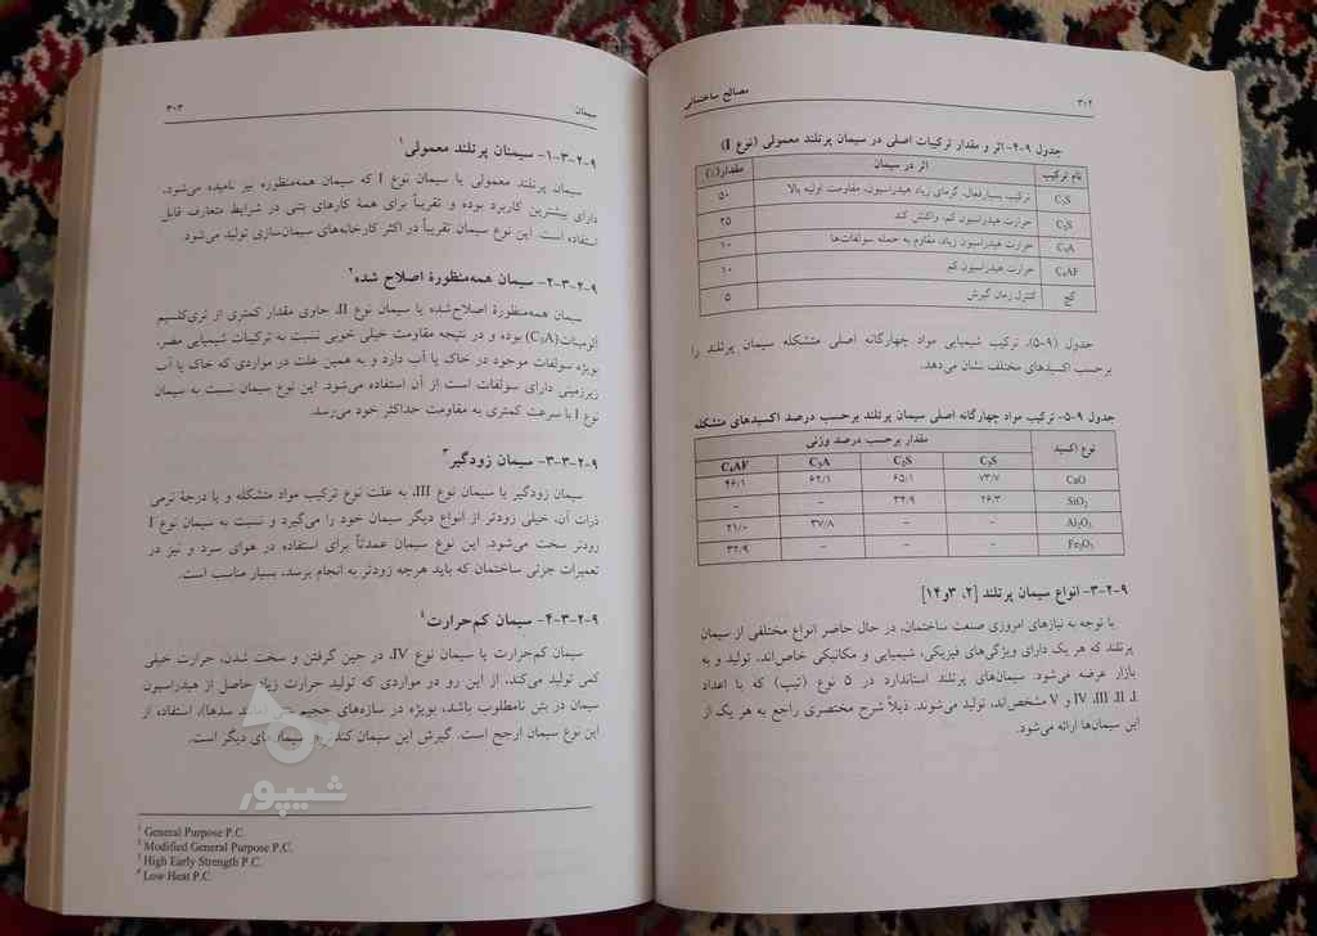 ۳۰۲
مصالح ساختمانی
جدول ۹-۴- اثر و مقدار ترکیبات اصلی در سیمان پرتلند معمولی (نوع I)
نام ترکیب اثر در سیمان مقدار(٪)
C₃S ترکیب بسیارفعال، گرمای زیاد هیدراسیون، مقاومت اولیه بالا ۵۰
C₂S حرارت هیدراسیون کم، واکنش کند ۲۵
C₃A حرارت هیدراسیون زیاد، مقاوم به حمله سولفات‌ها ۱۰
C₄AF حرارت هیدراسیون کم ۱۰
گچ کنترل زمان گیرش ۵
جدول (۹-۵)، ترکیب شیمیایی مواد چهارگانه اصلی متشکله سیمان پرتلند را
برحسب اکسیدهای مختلف نشان می‌دهد.
جدول ۹-۵- ترکیب مواد چهارگانه اصلی سیمان پرتلند برحسب درصد اکسیدهای متشکله
نوع اکسید مقدار برحسب درصد وزنی
C₃S C₂S C₃A C₄AF
CaO ۷۳/۷ ۶۵/۱ ۶۲/۱ ۴۶/۱
SiO₂ ۲۶/۳ ۳۴/۹ – –
Al₂O₃ – – ۳۷/۸ ۲۱/۰
Fe₂O₃ – – – ۳۲/۹
۹-۲-۳- انواع سیمان پرتلند [۲، ۳و۱۴]
با توجه به نیازهای امروزی صنعت ساختمان، در حال حاضر انواع مختلفی از سیمان
پرتلند که هر یک دارای ویژگی‌های فیزیکی، شیمیایی و مکانیکی خاص‌اند، تولید و به
بازار عرضه می‌شود. سیمان‌های پرتلند استاندارد در ۵ نوع (تیپ) که با اعداد
I، II، III، IV و V مشخص‌اند، تولید می‌شوند. ذیلاً شرح مختصری راجع به هر یک از
این سیمان‌ها ارائه می‌شود.
سیمان
۳۰۳
۹-۲-۳-۱- سیمنان پرتلند معمولی¹
سیمان پرتلند معمولی یا سیمان نوع I که سیمان همه‌منظوره نیز نامیده می‌شود،
دارای بیشترین کاربرد بوده و تقریباً برای همهٔ کارهای بتنی در شرایط متعارف قابل
استفاده است. این نوع سیمان تقریباً در اکثر کارخانه‌های سیمان‌سازی تولید می‌شود.
۹-۲-۳-۲- سیمان همه‌منظورهٔ اصلاح شده²
سیمان همه‌منظورهٔ اصلاح‌شده یا سیمان نوع II، حاوی مقدار کمتری از تری‌کلسیم
آلومینات(C₃A) بوده و در نتیجه مقاومت خیلی خوبی نسبت به ترکیبات شیمیایی مضر،
بویژه سولفات موجود در خاک یا آب دارد و به همین علت در مواردی که خاک یا آب
زیرزمینی دارای سولفات است از آن استفاده می‌شود. این نوع سیمان نسبت به سیمان
نوع I با سرعت کمتری به مقاومت حداکثر خود می‌رسد.
۹-۲-۳-۳- سیمان زودگیر³
سیمان زودگیر یا سیمان نوع III، به علت نوع ترکیب مواد متشکله و یا درجهٔ نرمی
ذرات آن، خیلی زودتر از انواع دیگر سیمان خود را می‌گیرد و نسبت به سیمان نوع I
زودتر سخت می‌شود. این نوع سیمان عمدتاً برای استفاده در هوای سرد و نیز در
تعمیرات جزئی ساختمان که باید هرچه زودتر به انجام برسد، بسیار مناسب است.
۹-۲-۳-۴- سیمان کم‌حرارت⁴
سیمان کم‌حرارت یا سیمان نوع IV، در حین گرفتن و سخت شدن، حرارت خیلی
کمی تولید می‌کند، از این رو در مواردی که تولید حرارت زیاد حاصل از هیدراسیون
سیمان در بتن نامطلوب باشد، بویژه در سازه‌های حجیم سدها)، استفاده از
این نوع سیمان ارجح است. گیرش این سیمان دیگر است.
¹ General Purpose P.C.
² Modified General Purpose P.C.
³ High Early Strength P.C.
⁴ Low Heat P.C.
شیپور